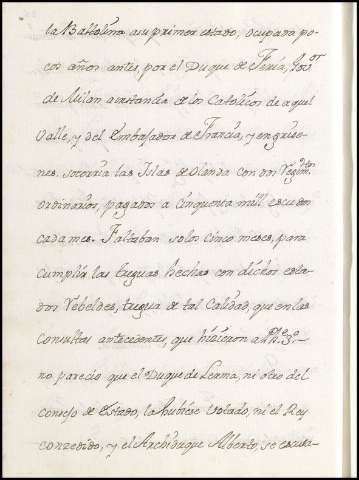 la Baltolina a su primer estado, ocupada po-
cos años antes, por el Duque de Feria, Gov.or
de Milan a instancia de los Catolicos de aquel
Valle, y del Embajador de Francia, y en griso-
nes. socorria las Islas de Olanda con dos Regim.tos
ordinarios, pagados a cinquenta mill escudos
cada mes. Faltaban solos cinco meses, para
cumplir las treguas hechas con dichos esta-
dos Rebeldes, tregua de tal Calidad, que en las
Consultas antecedentes, que hicieron a Ph.e 3.o
no parecio que el Duque de Lerma, ni otro del
consejo de Estado, la hubiese votado, ni el Rey
concedido, y el Archiduque Alberto, se escusa-